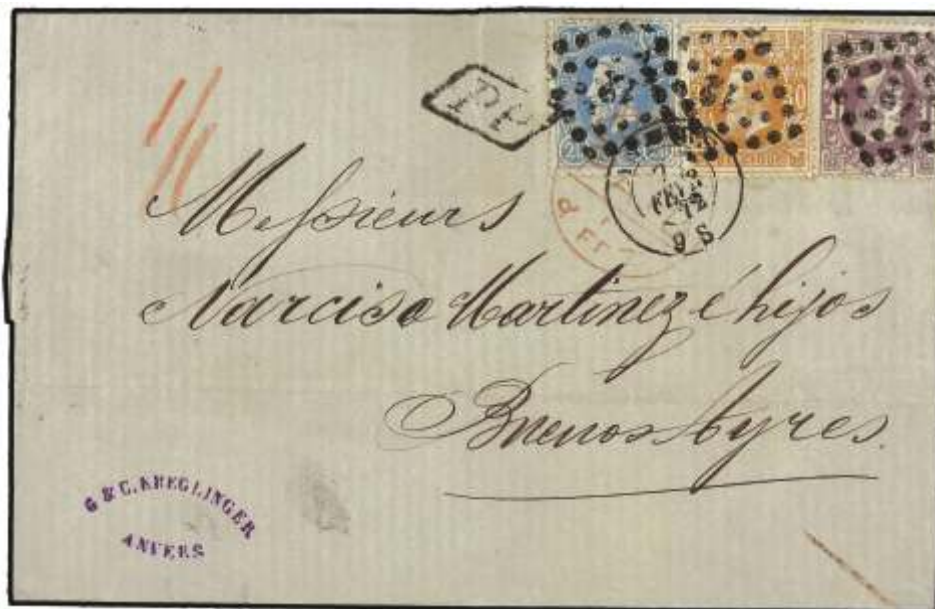 PP
FEVR
72
9 S
Messieurs
Narciso Martinez é hijos
Buenos Ayres.
G & C. KREGLINGER
ANVERS